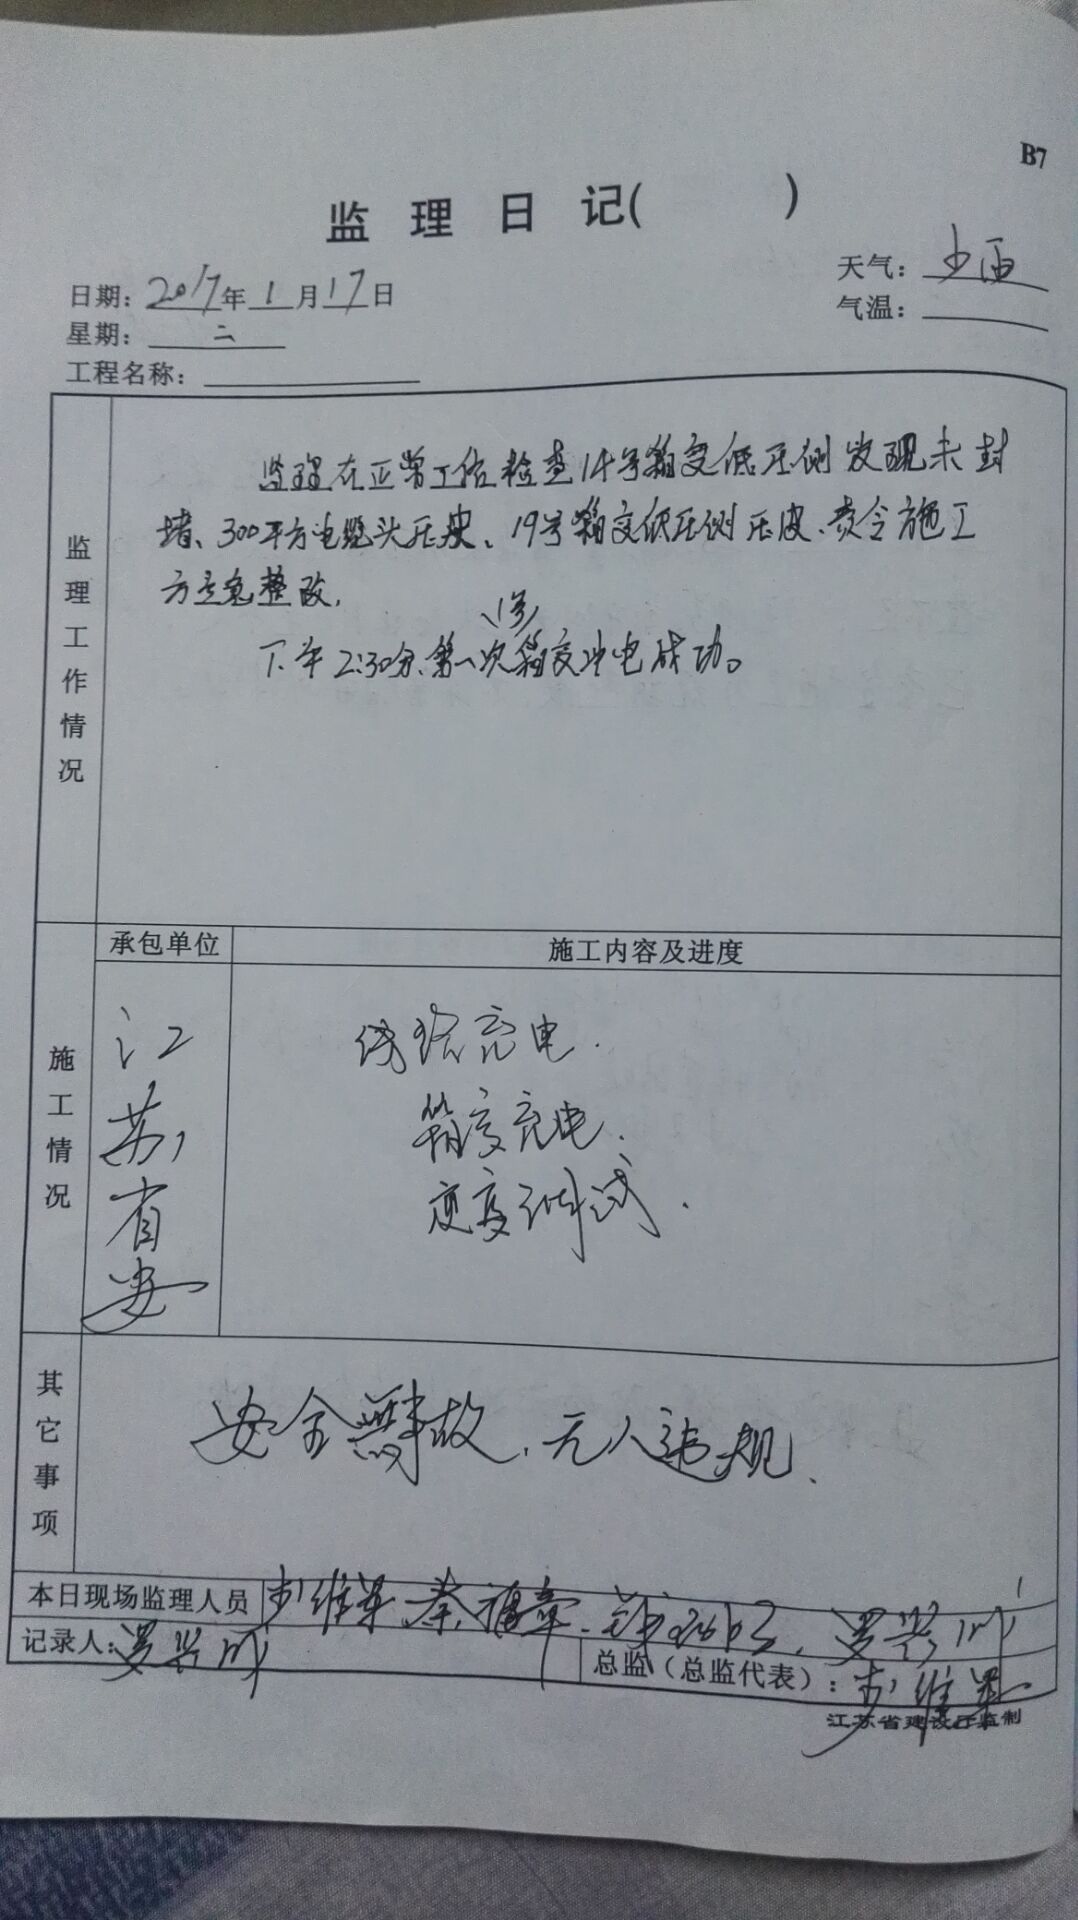 B7
监 理 日 记( )
天气:
日期: 2017年 1 月 17 日
气温:
星期: 二
工程名称:
监理工作情况
监理在正常工作检查14号箱变低压侧发现未封
堵、300平方电缆头压皮、19号箱变低压侧压皮、责令施工
方应急整改,
1号
下午2:30分、第一次箱变冲电成功。
承包单位
施工内容及进度
施工情况
江苏省安
线路充电.
箱变充电.
变调试.
其它事项
安全无事故,无人违规.
本日现场监理人员 罗兴
记录人: 罗兴
总监(总监代表):
江苏省建设厅监制